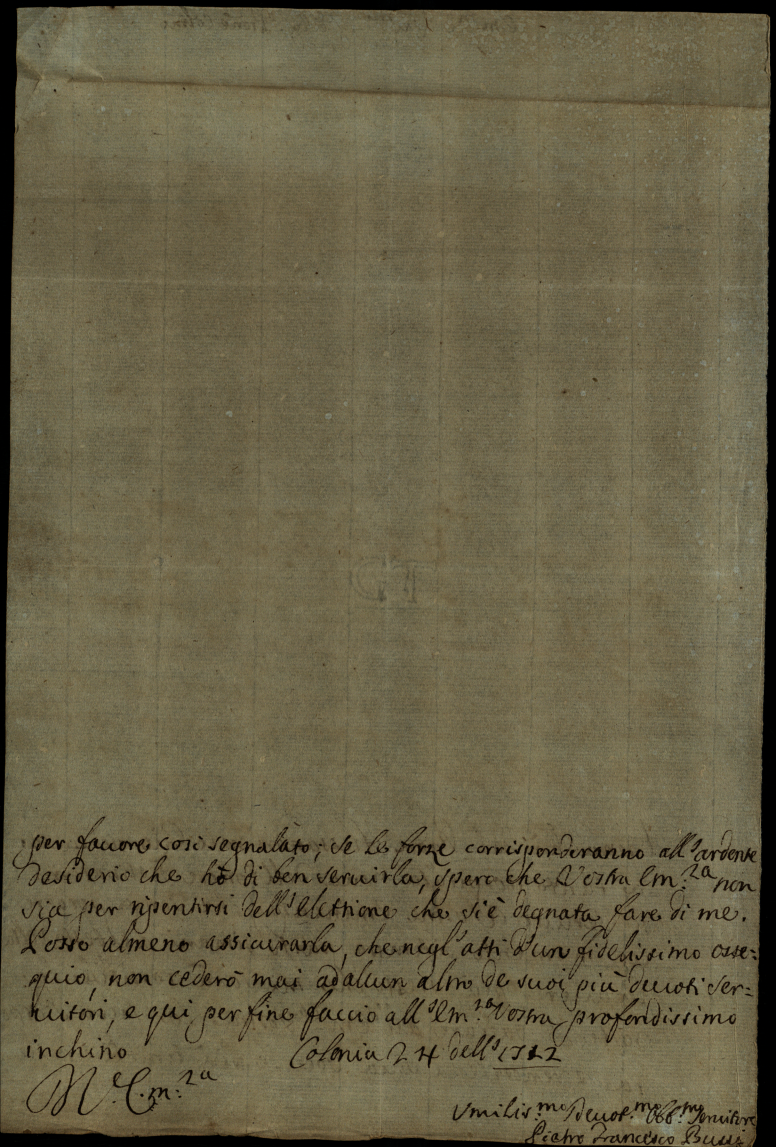 per fauore così segnalato; se le forze corrisponderanno all'ardente
desiderio che hò di ben seruirla, spero che Vostra Em.za non
sia per ripentirsi dell'elettione che si è degnata fare di me.
Posso almeno assicurarla, che negl'atti d'un fidelissimo osse=
quio, non cederò mai ad alcun altro de suoi più deuoti ser=
uitori, e qui per fine faccio all'Em.za Vostra profondissimo
inchino Colonia 24 dell'
Umilis.mo Deuot.mo Obb.mo Seruitore
Pietro Francesco Bussi